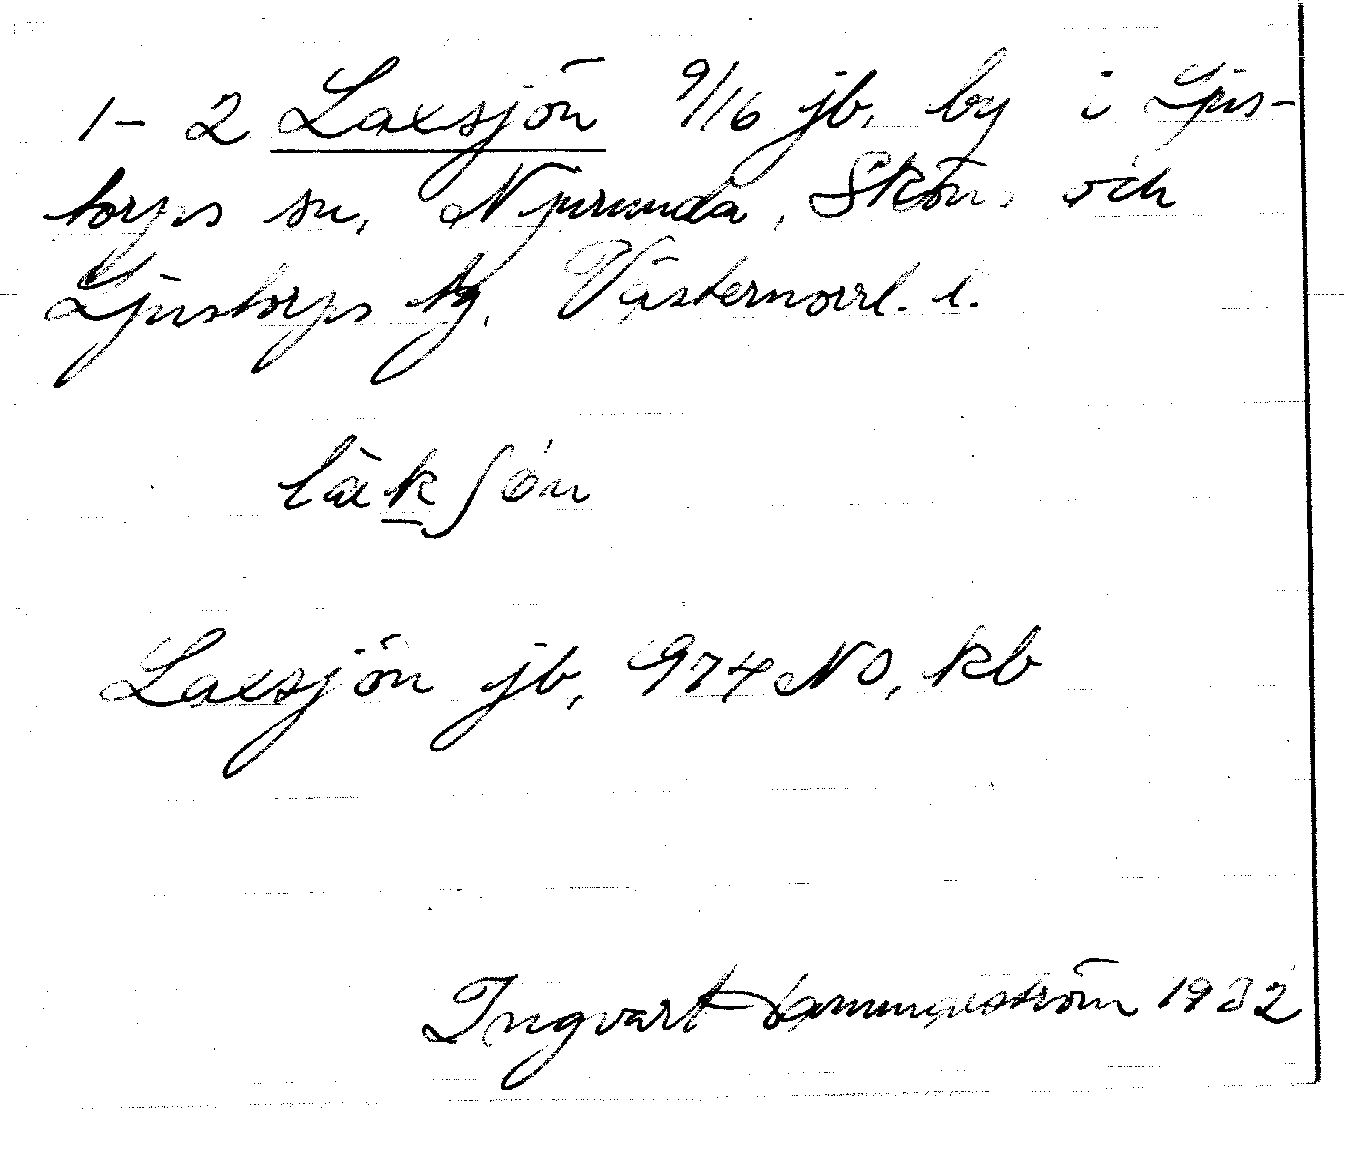 1-2 Laxsjön 9/16 jb. by i Ljus-
torps sn, Njurunda, Sköns och
Ljustorps tg. Västernorrl. l.
läkʃön
Laxsjön jb, 974 NO, kb
Ingvart 1932